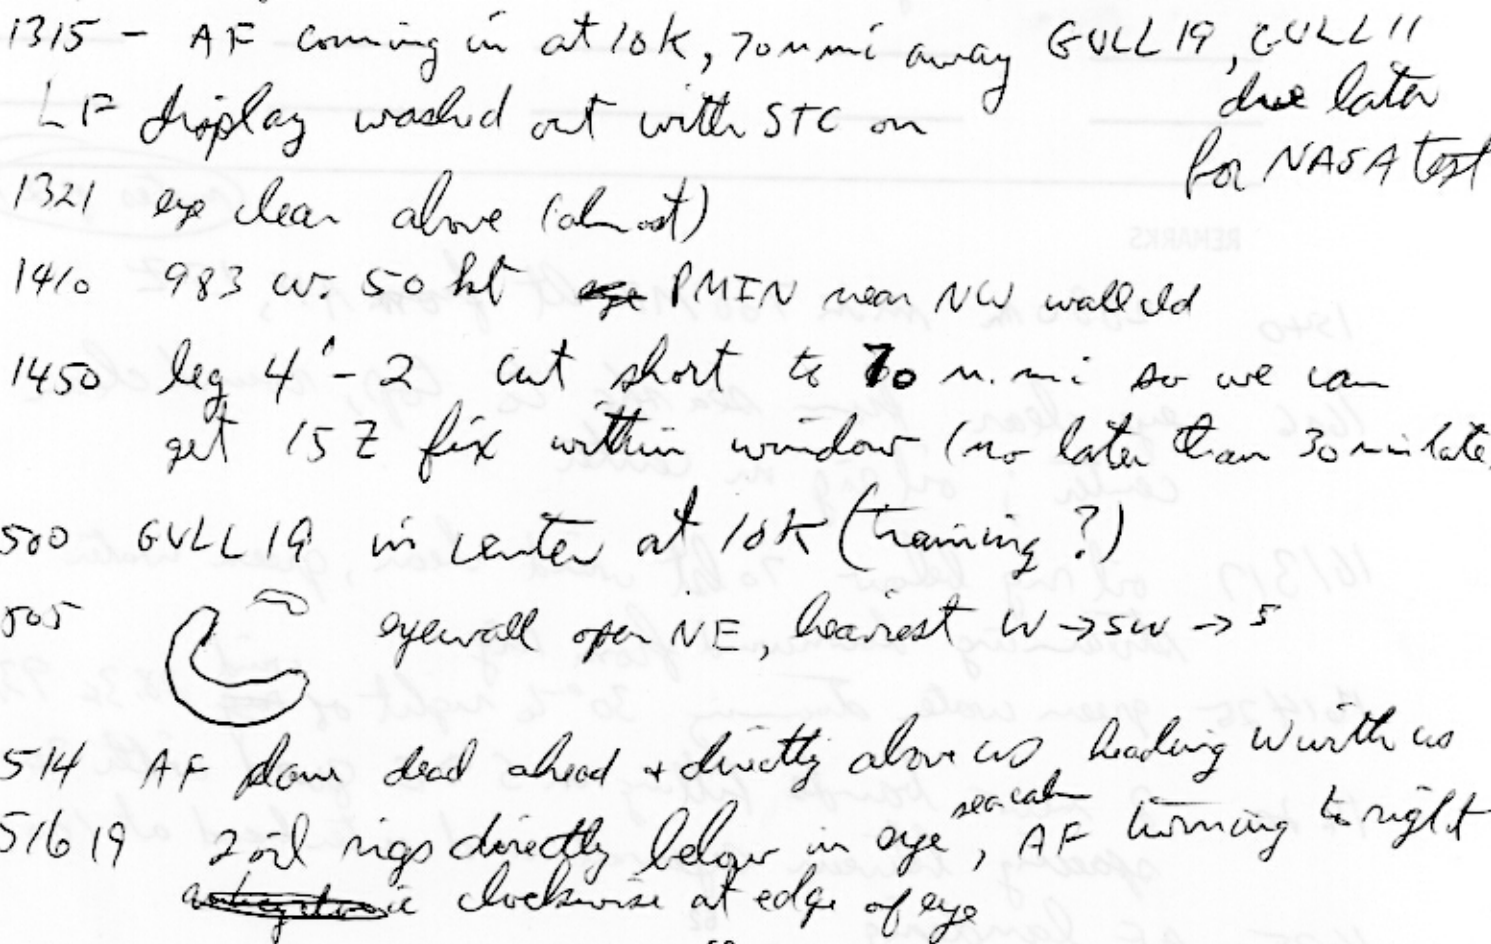 1315 - AF coming in at 10K, 70 n mi away GULL 19, GULL 11
due later
LF display washed out with STC on
for NASA test
1321 eye clear above (almost)
REMARKS
1410 983 w. 50 kt PMIN near NW wall cld
1450 leg 4'-2 cut short to 70 n.mi so we can
get 15Z fix within window (no later than 30 min late
500 GULL 19 in center at 10K (training?)
505 eyewall open NE, heaviest W → SW → S
514 AF plane dead ahead + directly above us, heading W with us
sea calm
516 19 2 oil rigs directly below in eye, AF turning to right
clockwise at edge of eye